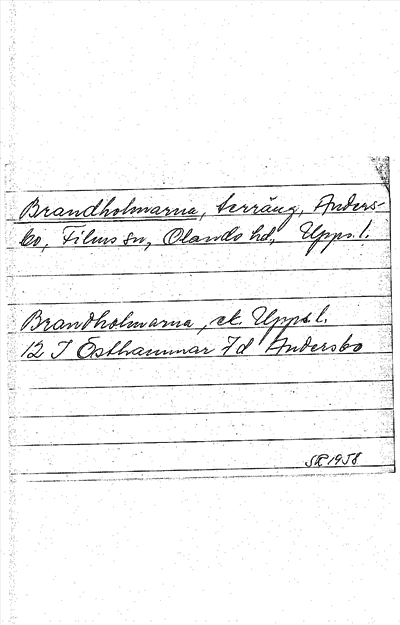 Brandholmarna, terräng, Anders-
bo, Films sn, Olands hd, Upps. l.
Brandholmarna, ek. Upps. l.
12 I Östhammar 7d Andersbo
1958